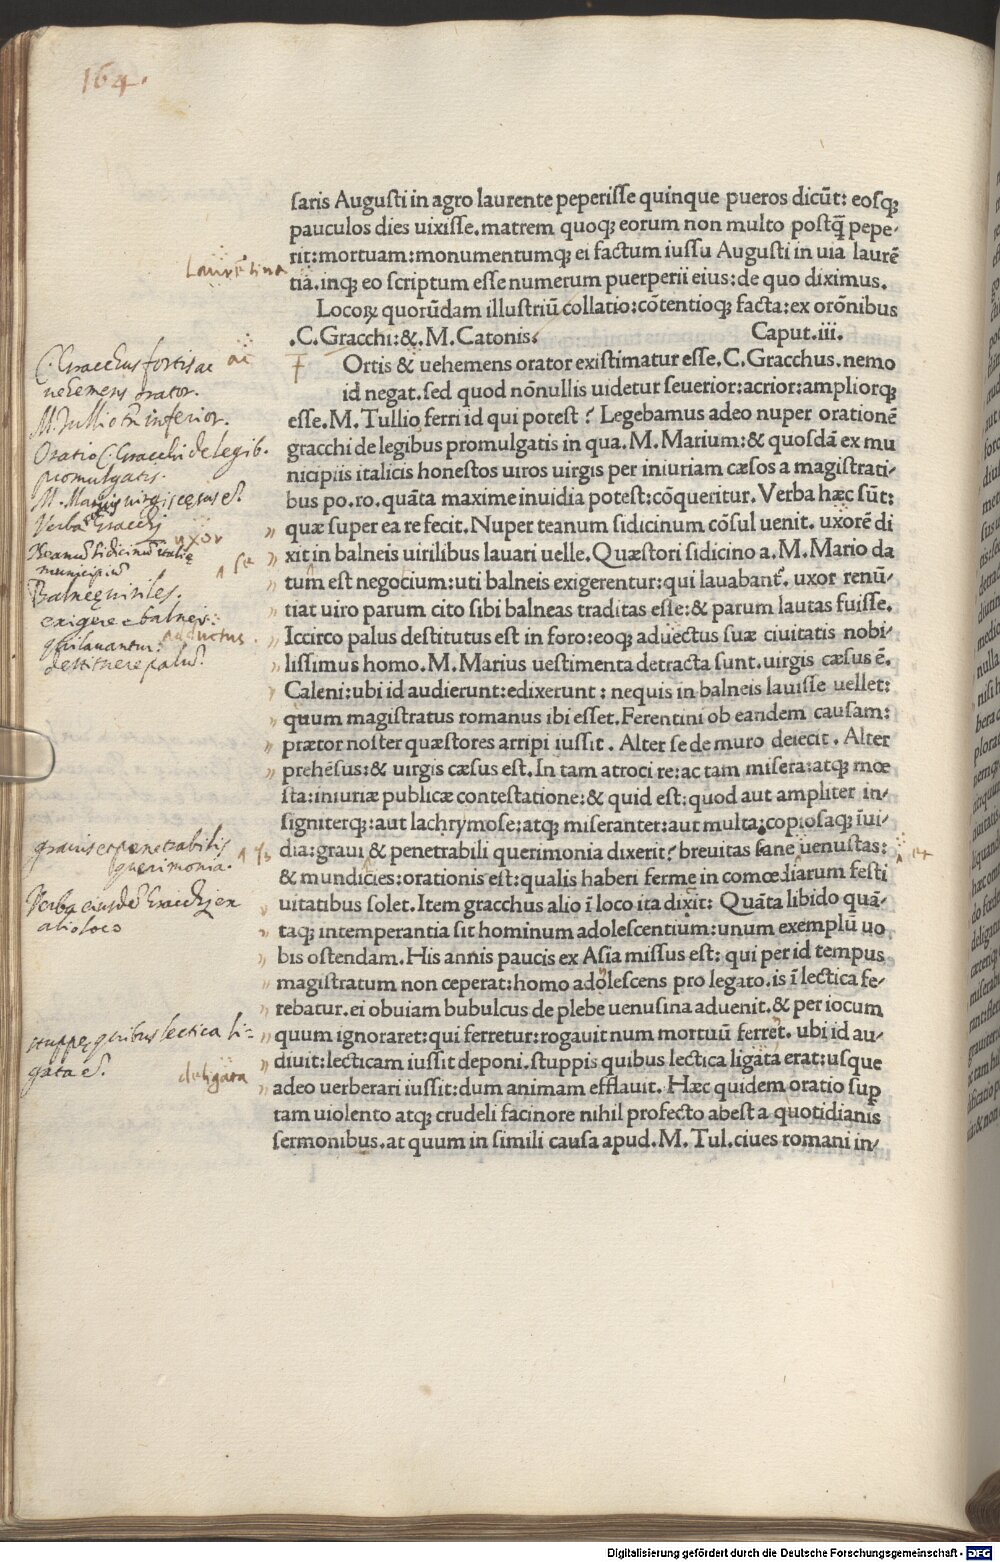 164.
saris Augusti in agro laurente peperisse quinque pueros dicūt: eosq;
pauculos dies uixisse.matrem quoq; eorum non multo postq̄ pepe/
rit:mortuam:monumentumq; ei factum iussu Augusti in uia laurē
tia.inq; eo scriptum esse numerum puerperii eius:de quo diximus.
Locoꝝ quorūdam illustriū collatio:cōtentioq; facta:ex orōnibus
.C. Gracchi:&.M.Catonis. Caput.iii.
Ortis & uehemens orator existimatur esse.C.Gracchus.nemo
id negat.sed quod nōnullis uidetur seuerior:acrior:ampliorq;
esse.M.Tullio ferri id qui potest? Legebamus adeo nuper orationē
gracchi de legibus promulgatis in qua.M.Marium:& quosdā ex mu
nicipiis italicis honestos uiros uirgis per iniuriam cæsos a magistrati/
bus po.ro.quāta maxime inuidia potest:cōqueritur.Verba hæc sūt:
quæ super ea re fecit.Nuper teanum sidicinum cōsul uenit.uxorē di
xit in balneis uirilibus lauari uelle.Quæstori sidicino a.M.Mario da
tum est negocium:uti balneis exigerentur:qui lauabant.uxor renū/
tiat uiro parum cito sibi balneas traditas esse:& parum lautas fuisse.
Iccirco palus destitutus est in foro:eoq; aduectus suæ ciuitatis nobi/
lissimus homo.M.Marius uestimenta detracta sunt.uirgis cæsus ē.
Caleni:ubi id audierunt:edixerunt: nequis in balneis lauisse uellet:
quum magistratus romanus ibi esset.Ferentini ob eandem causam:
prætor noster quæstores arripi iussit. Alter se de muro deiecit. Alter
prehēsus:& uirgis cæsus est.In tam atroci re:ac tam misera:atq; mœ
sta:iniuriæ publicæ contestatione:& quid est:quod aut ampliter in/
signiterq;:aut lachrymose:atq; miseranter:aut multa:copiosaq; īui/
dia:graui & penetrabili querimonia dixerit? breuitas sane uenustas:
& mundicies:orationis est:qualis haberi ferme in comœdiarum festi
uitatibus solet.Item gracchus alio ī loco ita dixit: Quāta libido quā/
taq; intemperantia sit hominum adolescentium:unum exemplū uo
bis ostendam.His annis paucis ex Asia missus est: qui per id tempus
magistratum non ceperat:homo adolescens pro legato.is ī lectica fe/
rebatur.ei obuiam bubulcus de plebe uenusina aduenit.& per iocum
quum ignoraret:qui ferretur:rogauit num mortuū ferret. ubi id au/
diuit:lecticam iussit deponi.stuppis quibus lectica ligata erat:usque
adeo uerberari iussit:dum animam efflauit. Hæc quidem oratio suꝑ
tam uiolento atq; crudeli facinore nihil profecto abest a quotidianis
sermonibus.at quum in simili causa apud.M.Tul.ciues romani in/
Laurētina
C. Gracchus fortis ac
uehemens orator.
ac
M. Tullio tn̄ inferior.
Oratio C. Gracchi de legib.
promulgatis.
Verba Gracchj
uxor
se
Balneę uiriles.
exigere e balneis
aductus
grauis et penetrabilis
querimonia.
Verba eiusdē Gracchj ex
alio loco
et
stuppę quibus lectica li-
gata
deligata
Digitalisierung gefördert durch die Deutsche Forschungsgemeinschaft - DFG